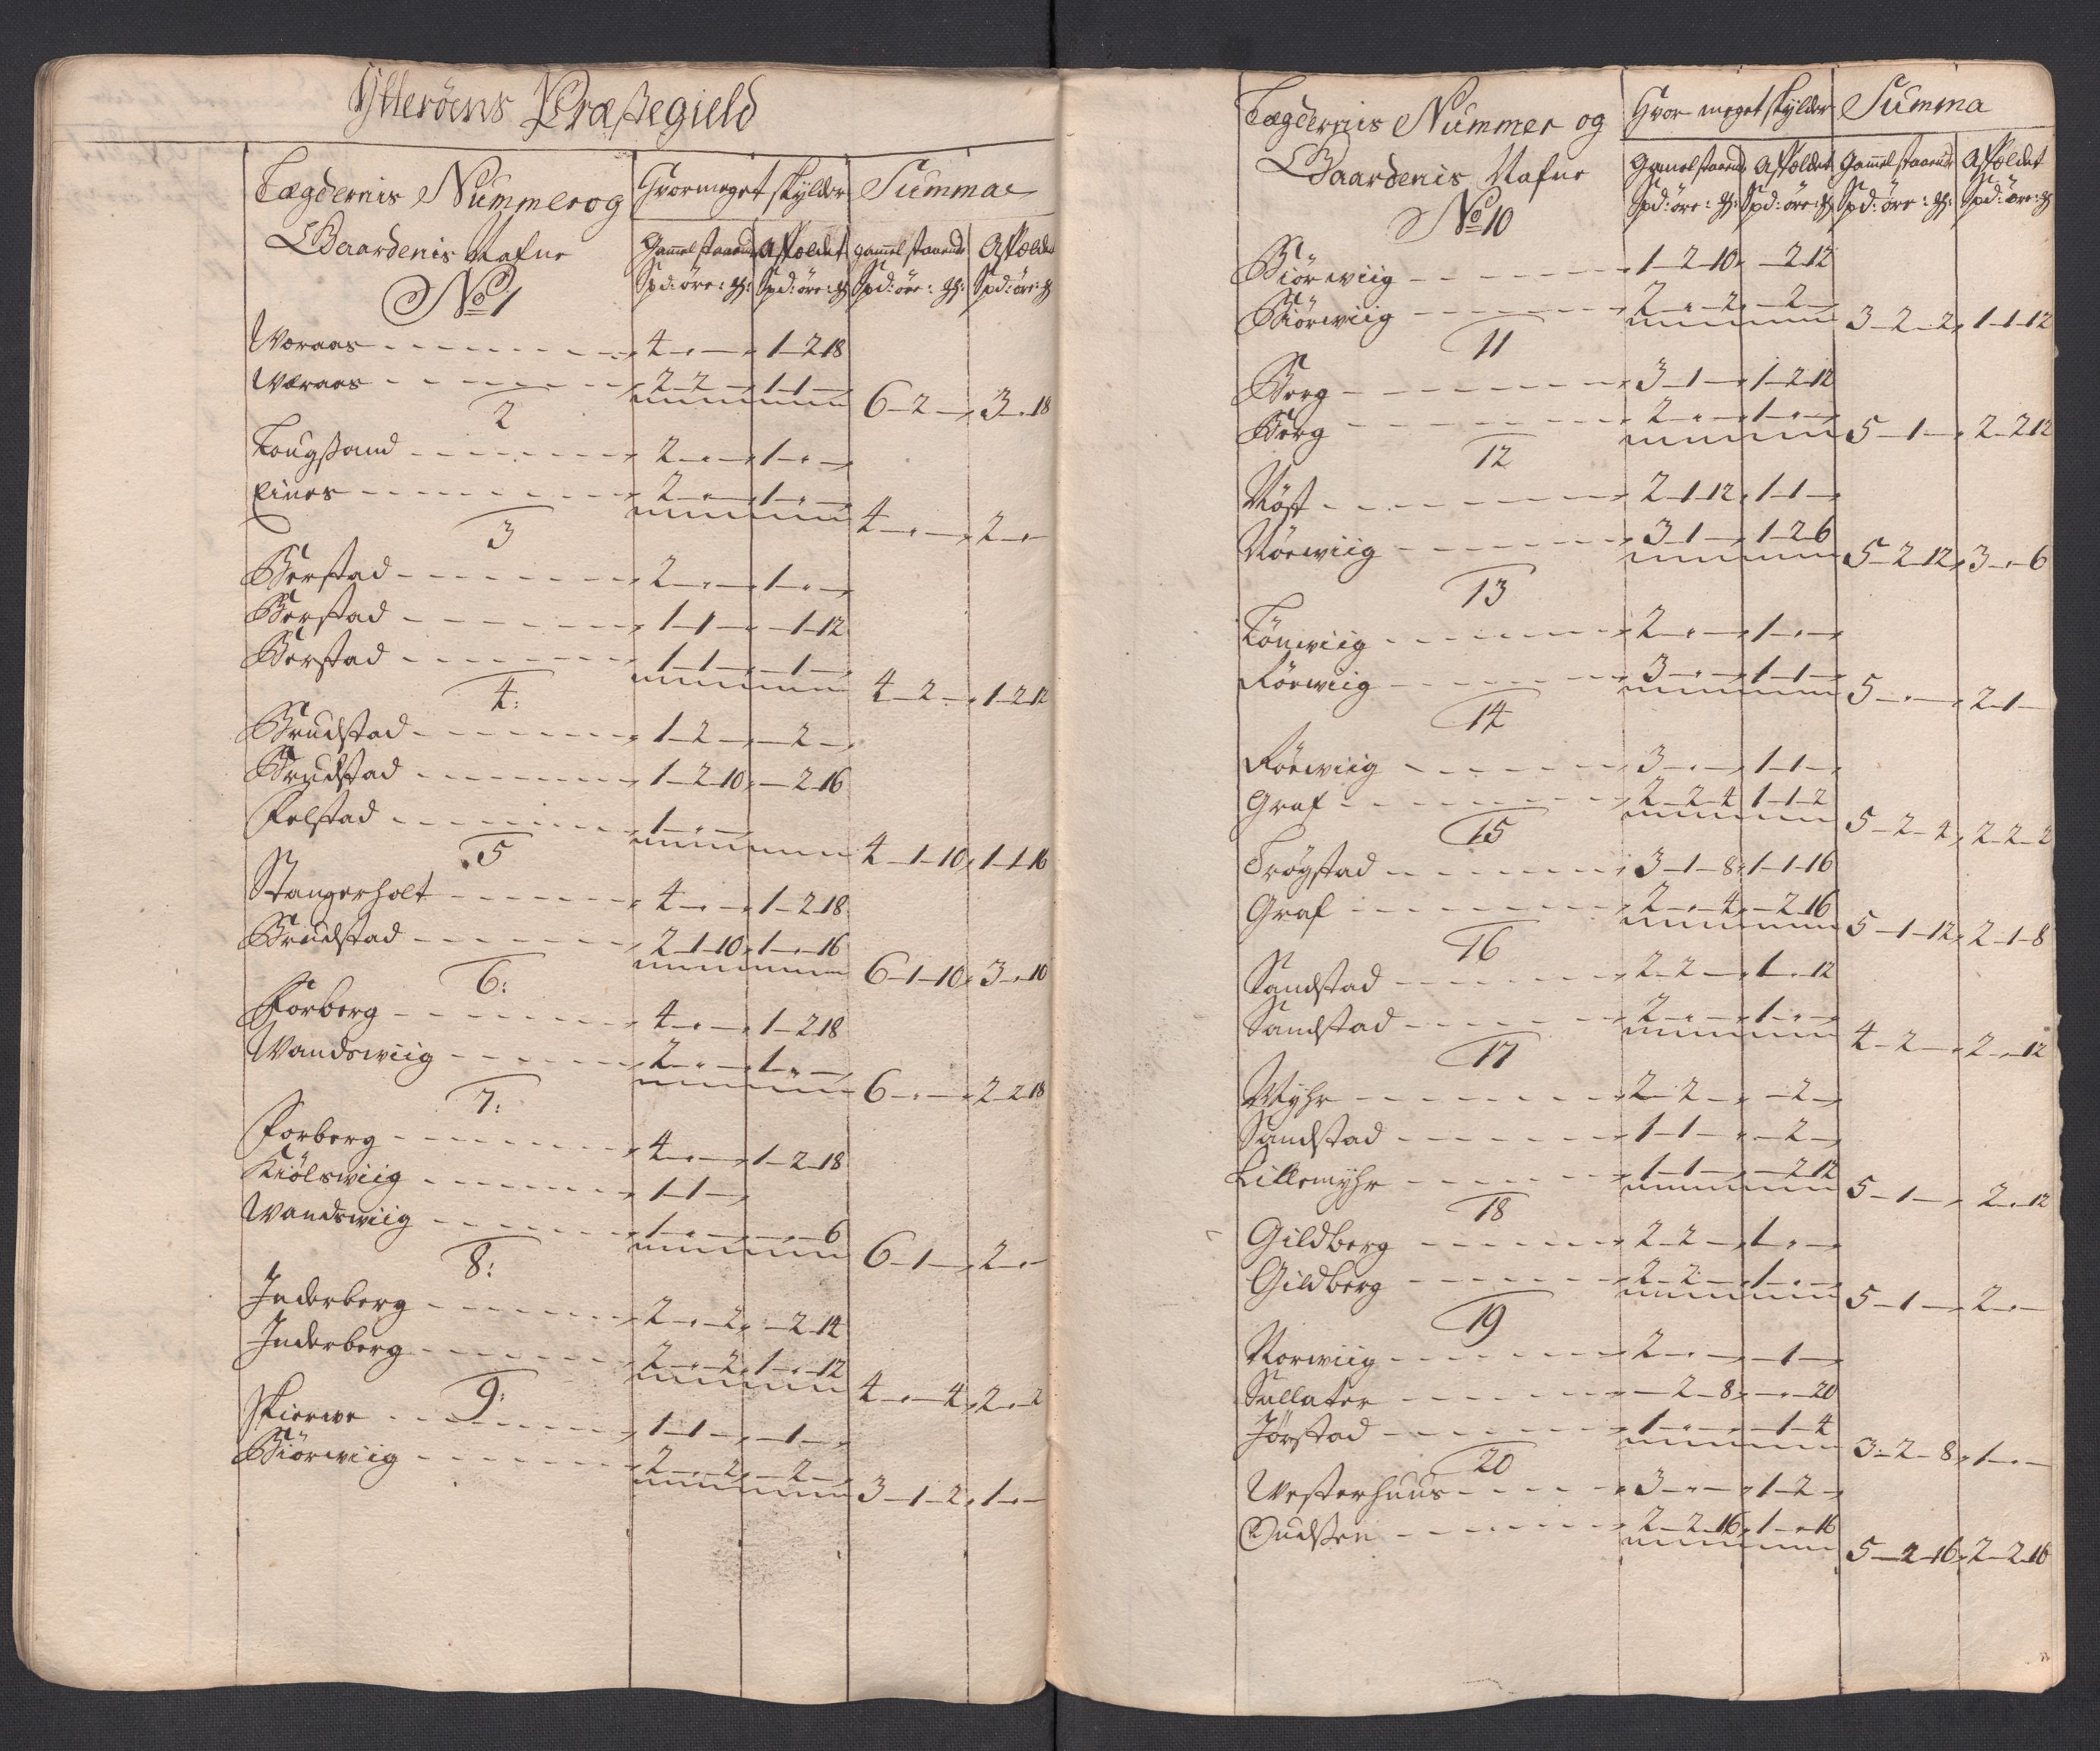 Ytterøens Præstegield
Lægdernis Nummer og Hvormeget skylder Summa
Gaardenis Nafne Gammel staaende Affældet gammel staaende Affældet
Spd: öre: Spd: öre: Spd: öre: Spd: öre:
No 1
Woraas 4 - - 1-2-18
Woraas 2-2- 1-1- 6-2- 3-18
2
Lougsand 2 - - 1 - -
Eines 2 - - 1 - - 4 - - 2 - -
3
Berstad 2 - - 1 - -
Berstad 1-1- -1-12
Berstad 1-1- -1- 4-2- 1-2-12
4:
Brudstad 1-2- -2-
Brudstad 1-2-10 -2-16
Felstad 1 - - 4-1-10 1-1-16
5
Stangerholt 4 - - 1-2-18
Brudstad 2-1-10 1-16 6-1-10 3-10
6:
Forberg 4 - - 1-2-18
Wandswiig 2 - - 1 - - 6 - - 2-2-18
7:
Forberg 4 - - 1-2-18
Kiölswiig 1-1-
Wandswiig 1 - - - - 6 6-1- 2 - -
8:
Inderberg 2 - 2 -2-14
Inderberg 2 - 2 1 - 12 4 - 4 2 - 2
9:
Skierwe 1-1- -1-
Biörwiig 2 - 2 -2- 3-1-2 1 - -
Lægdernis Nummer og Hvor meget skylder Summa
Gaardenis Nafne Gamel staaende Affældet Gammel staaende Affældet
Spd: öre: Spd: öre: Spd: öre: Spd: öre:
No 10
Biörwiig 1-2-10 -2-12
Biörwiig 2 - 2 -2- 3-2-2 1-1-12
11
Berg 3-1- 1-2-12
Berg 2 - - 1 - - 5-1- 2-2-12
12
Røst 2-1-12 1-1-
Rörwiig 3-1- 1-2-6 5-2-12 3 - 6
13
Lönwiig 2 - - 1 - -
Rörwiig 3 - - 1-1- 5 - - 2-1-
14
Rörwiig 3 - - 1-1-
Graf 2-2-4 1-1-2 5-2-4 2-2-2
15
Trögstad 3-1-8 1-1-16
Graf 2 - 4 -2-16 5-1-12 2-1-8
16
Sandstad 2-2- 1 - 12
Sandstad 2 - - 1 - - 4-2- 2 - 12
17
Myhr 2-2- -2-
Sandstad 1-1- -2-
Lillemyhr 1-1- -2-12 5-1- 2 - 12
18
Gildberg 2-2- 1 - -
Gildberg 2-2- 1 - - 5-1- 2 - -
19
Norwiig 2 - - -1-
Sallater -2-8 - - 20
Jørstad 1 - - -1-4 3-2-8 1 - -
20
Westerhuus 3 - - 1-2-
Oudsten 2-2-16 1 - 16 5-2-16 2-2-16